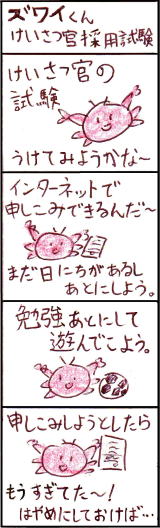 ズワイくん
けいさつ官採用試験
けいさつ官の
試験
うけてみようかな〜
インターネットで
申しこみできるんだ〜
まだ日にちがあるし
あとにしよう。
勉強あとにして
遊んでこよう。
申しこみしようとしたら
もうすぎてた〜!
はやめにしておけば…